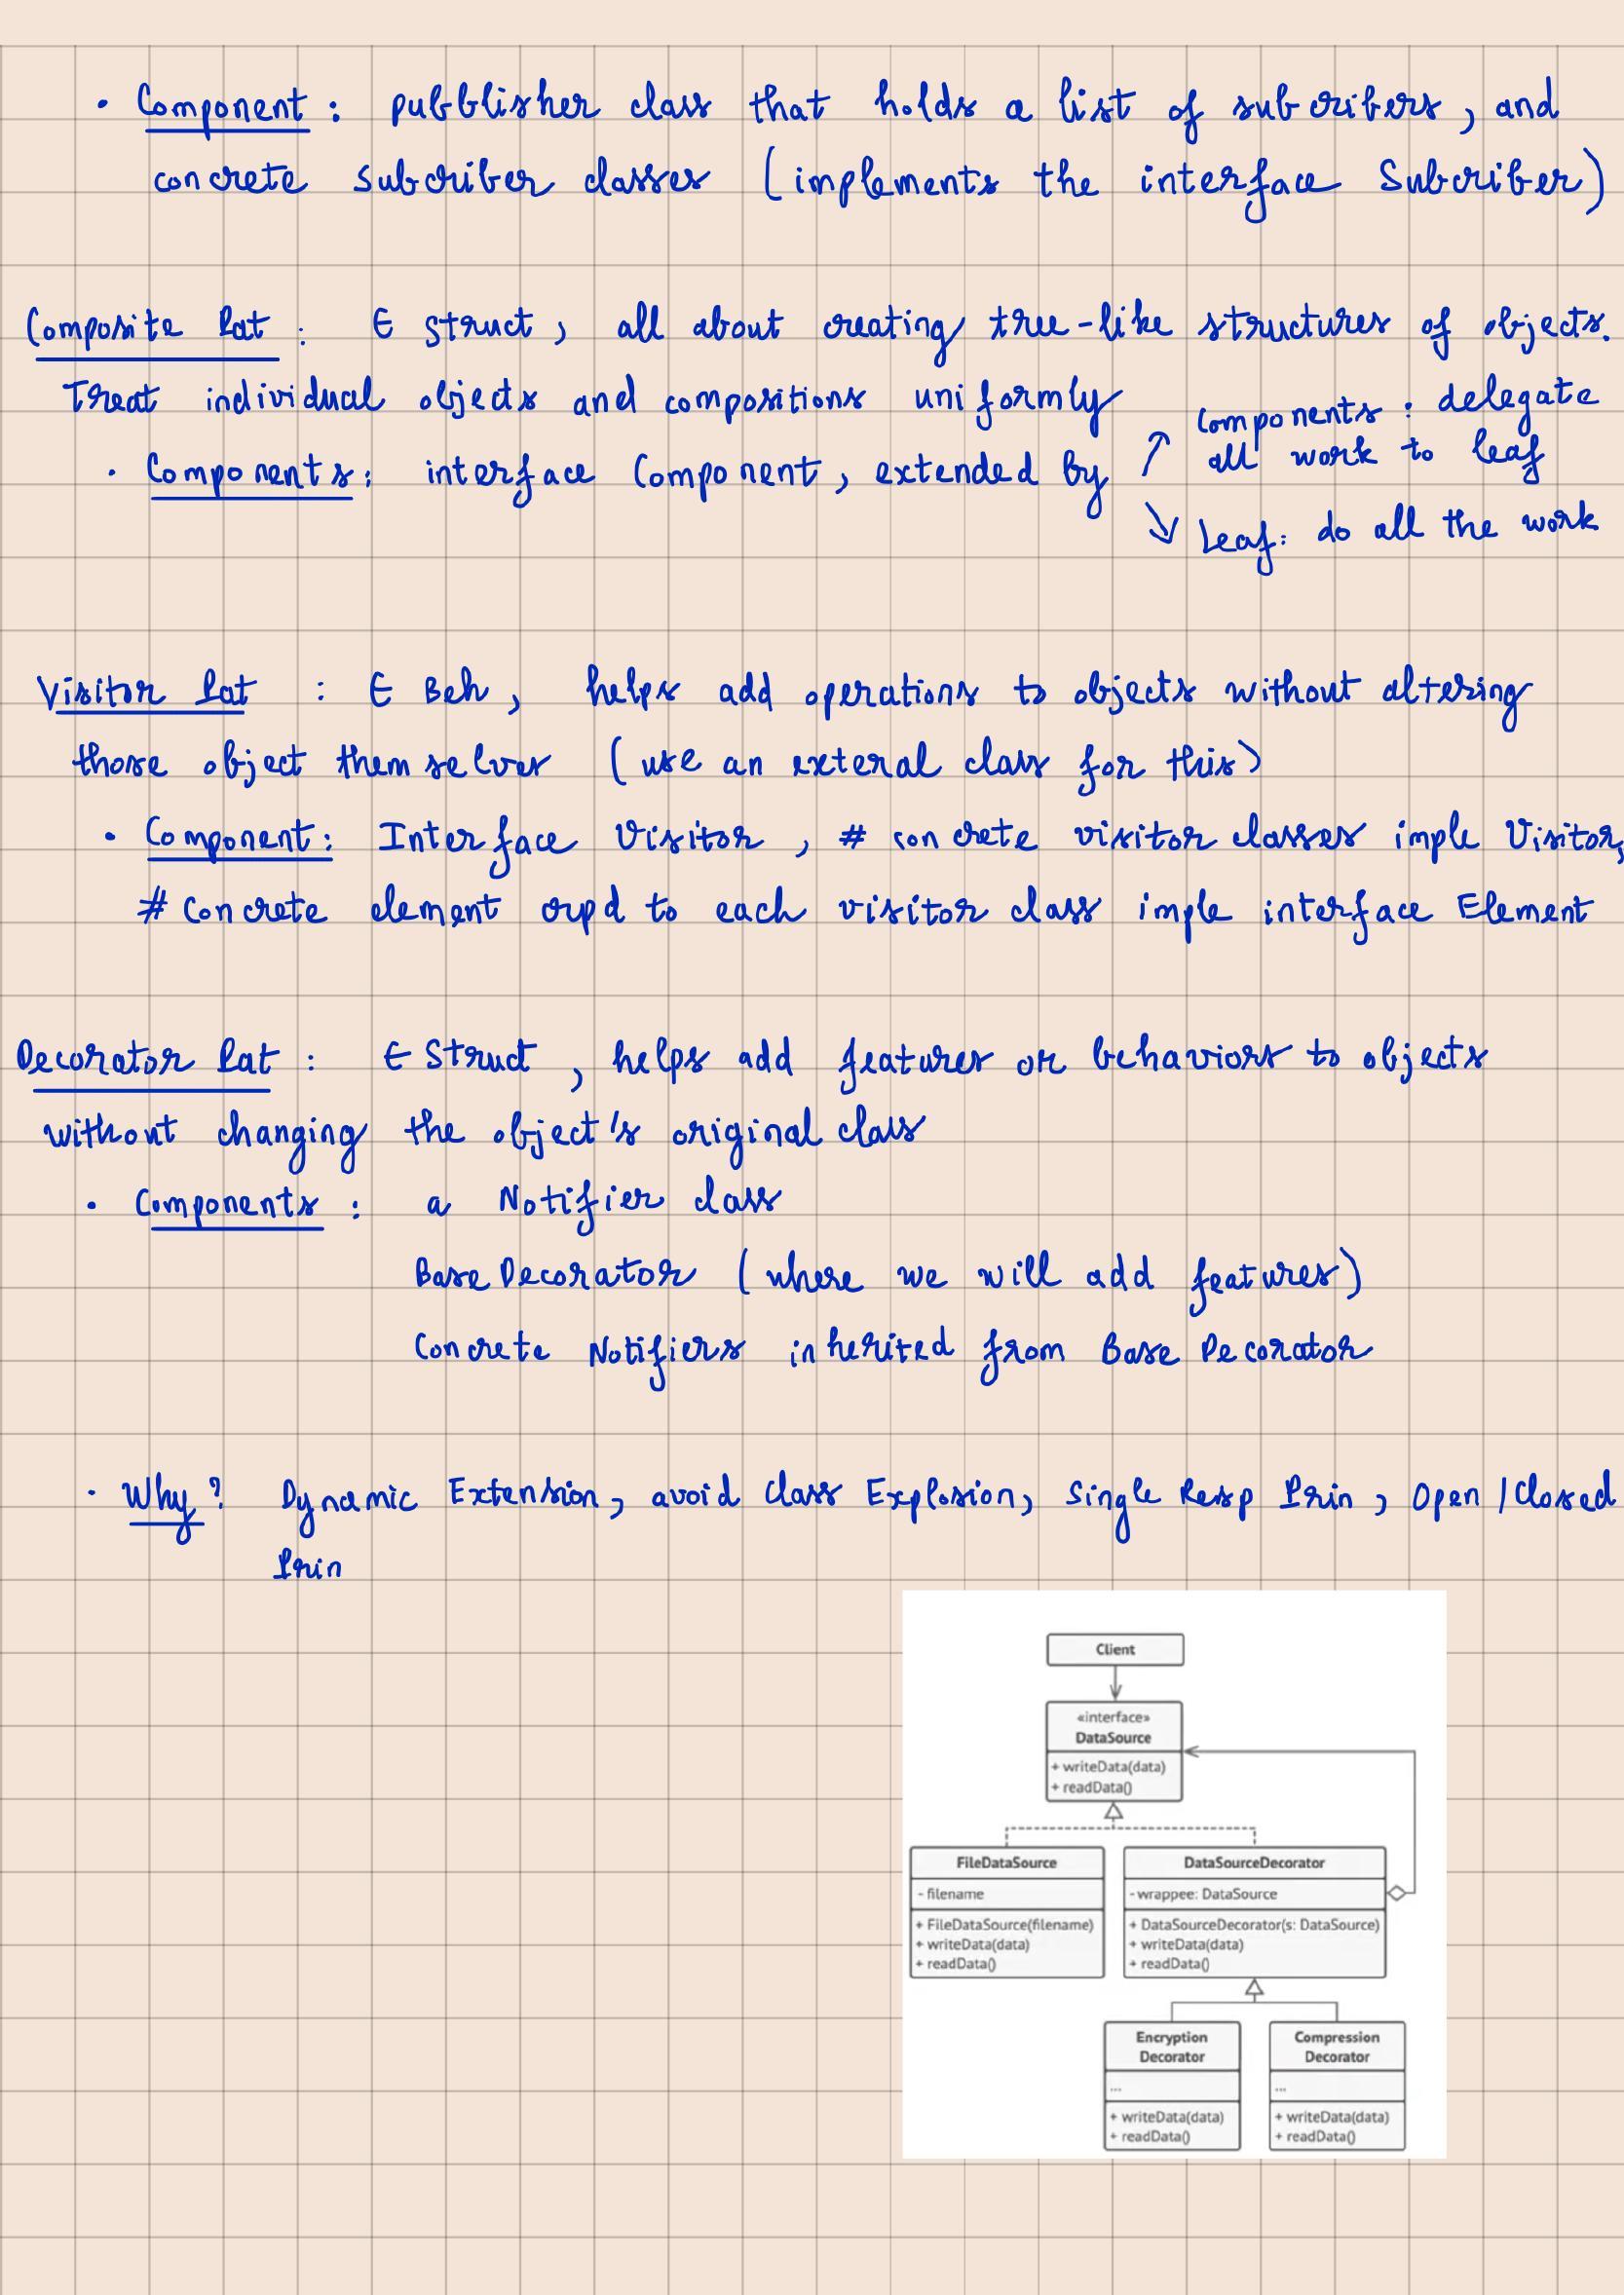 • Component : pubblisher class that holds a list of subcribers, and
concrete subcriber classes (implements the interface Subcriber)
Composite Pat : ∈ struct, all about creating tree-like structures of objects.
Treat individual objects and compositions uniformly
• Components: interface Component, extended by
↗ components : delegate
all work to leaf
↘ Leaf: do all the work
Visitor Pat : ∈ Beh, helps add operations to objects without altering
those object themselves (use an exteral class for this)
• Component: Interface Visitor, # concrete visitor classes imple Visitor,
# concrete element orpd to each visitor class imple interface Element
Decorator Pat : ∈ Struct, helps add features or behaviors to objects
without changing the object's original class
• Components : a Notifier class
Base Decorator (where we will add features)
Concrete Notifiers inherited from Base Decorator
• Why? Dynamic Extension, avoid Class Explosion, Single Resp Prin, Open/Closed
Prin
Client
«interface»
DataSource
+ writeData(data)
+ readData()
FileDataSource
- filename
+ FileDataSource(filename)
+ writeData(data)
+ readData()
DataSourceDecorator
- wrappee: DataSource
+ DataSourceDecorator(s: DataSource)
+ writeData(data)
+ readData()
Encryption
Decorator
...
+ writeData(data)
+ readData()
Compression
Decorator
...
+ writeData(data)
+ readData()